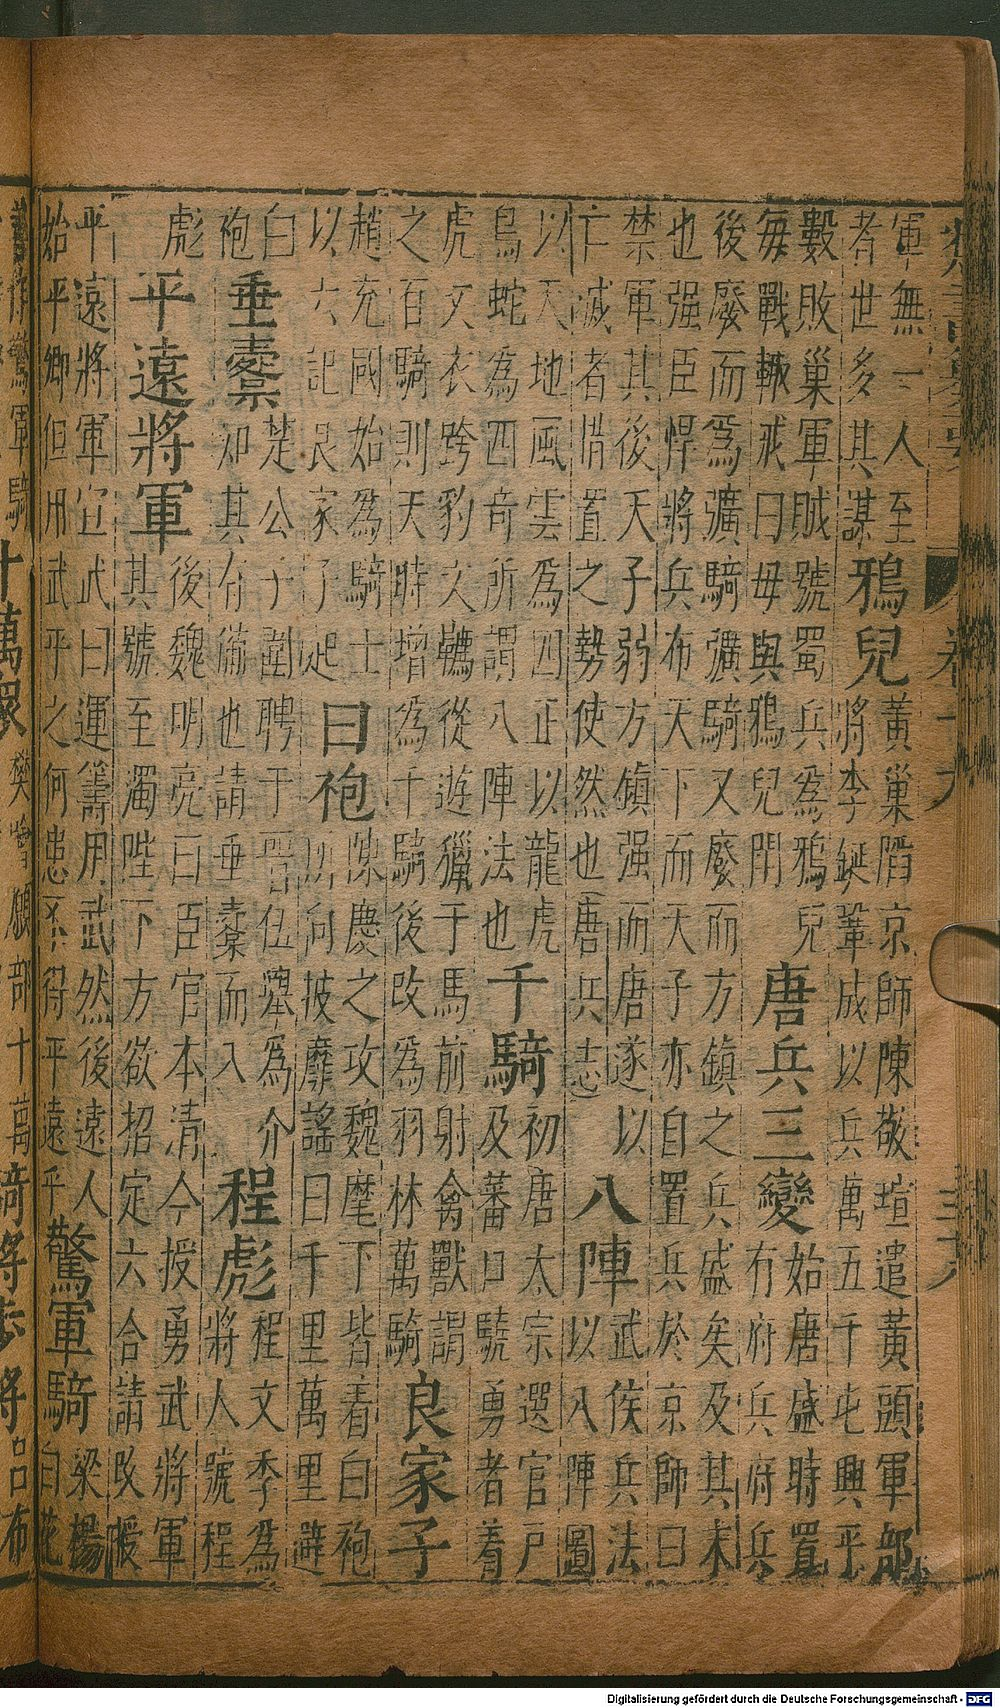 軍無一人至
者世多其謀
鴉兒
黃巢陷京師陳敬瑄遣黃頭軍部
將李鋋鞏咸以兵萬五千屯興平
數敗巢軍賊號蜀兵爲鴉兒
每戰輙戒曰毋與鴉兒鬥
唐兵三變
始唐盛時置
有府兵府兵
後廢而爲彍騎彍騎又廢而方鎮之兵盛矣及其末
也强臣悍將兵布天下而天子亦自置兵於京師曰
禁軍其後天子弱方鎮强而唐遂以
亡滅者措置之勢使然也唐兵志
八陣
武侯兵法
以八陣圖
以天地風雲爲四正以龍虎
鳥蛇爲四奇所謂八陣法也
千騎
初唐太宗選官戶
及蕃口驍勇者着
虎文衣跨豹文韉從遊獵于馬前射禽獸謂
之百騎則天時增爲千騎後改爲羽林萬騎
良家子
趙充國始爲騎士
以六郡良家子起
白袍
陳慶之攻魏麾下皆着白袍
所向披靡謠曰千里萬里避
白
袍
垂櫜
楚公子圍聘于晉伍舉爲介
知其有備也請垂櫜而入
程彪
程文季爲
將人號程
彪
平遠將軍
後魏明亮曰臣官本清今授勇武將軍
其號至濁陛下方欲招定六合請改授
平遠將軍宣武曰運籌用武然後遠人
始平卿但用武平之何患不得平遠乎
驚軍騎
梁楊
白花
十萬眾
Digitalisierung gefördert durch die Deutsche Forschungsgemeinschaft - DFG